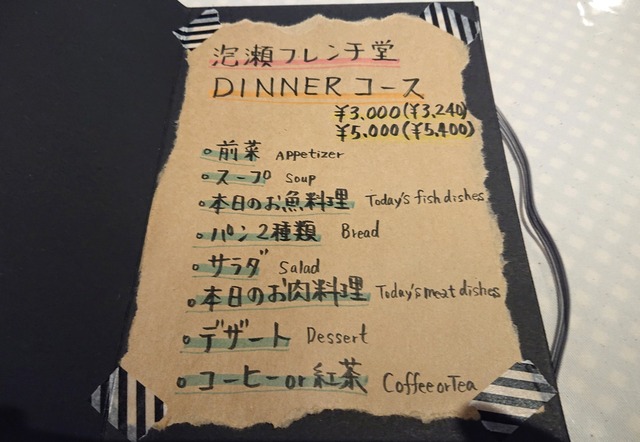 泡瀬フレンチ堂
DINNERコース
¥3,000(¥3,240)
¥5,000(¥5,400)
・前菜 Appetizer
・スープ Soup
・本日のお魚料理 Today's fish dishes
・パン2種類 Bread
・サラダ Salad
・本日のお肉料理 Today's meat dishes
・デザート Dessert
・コーヒーor紅茶 Coffee or Tea